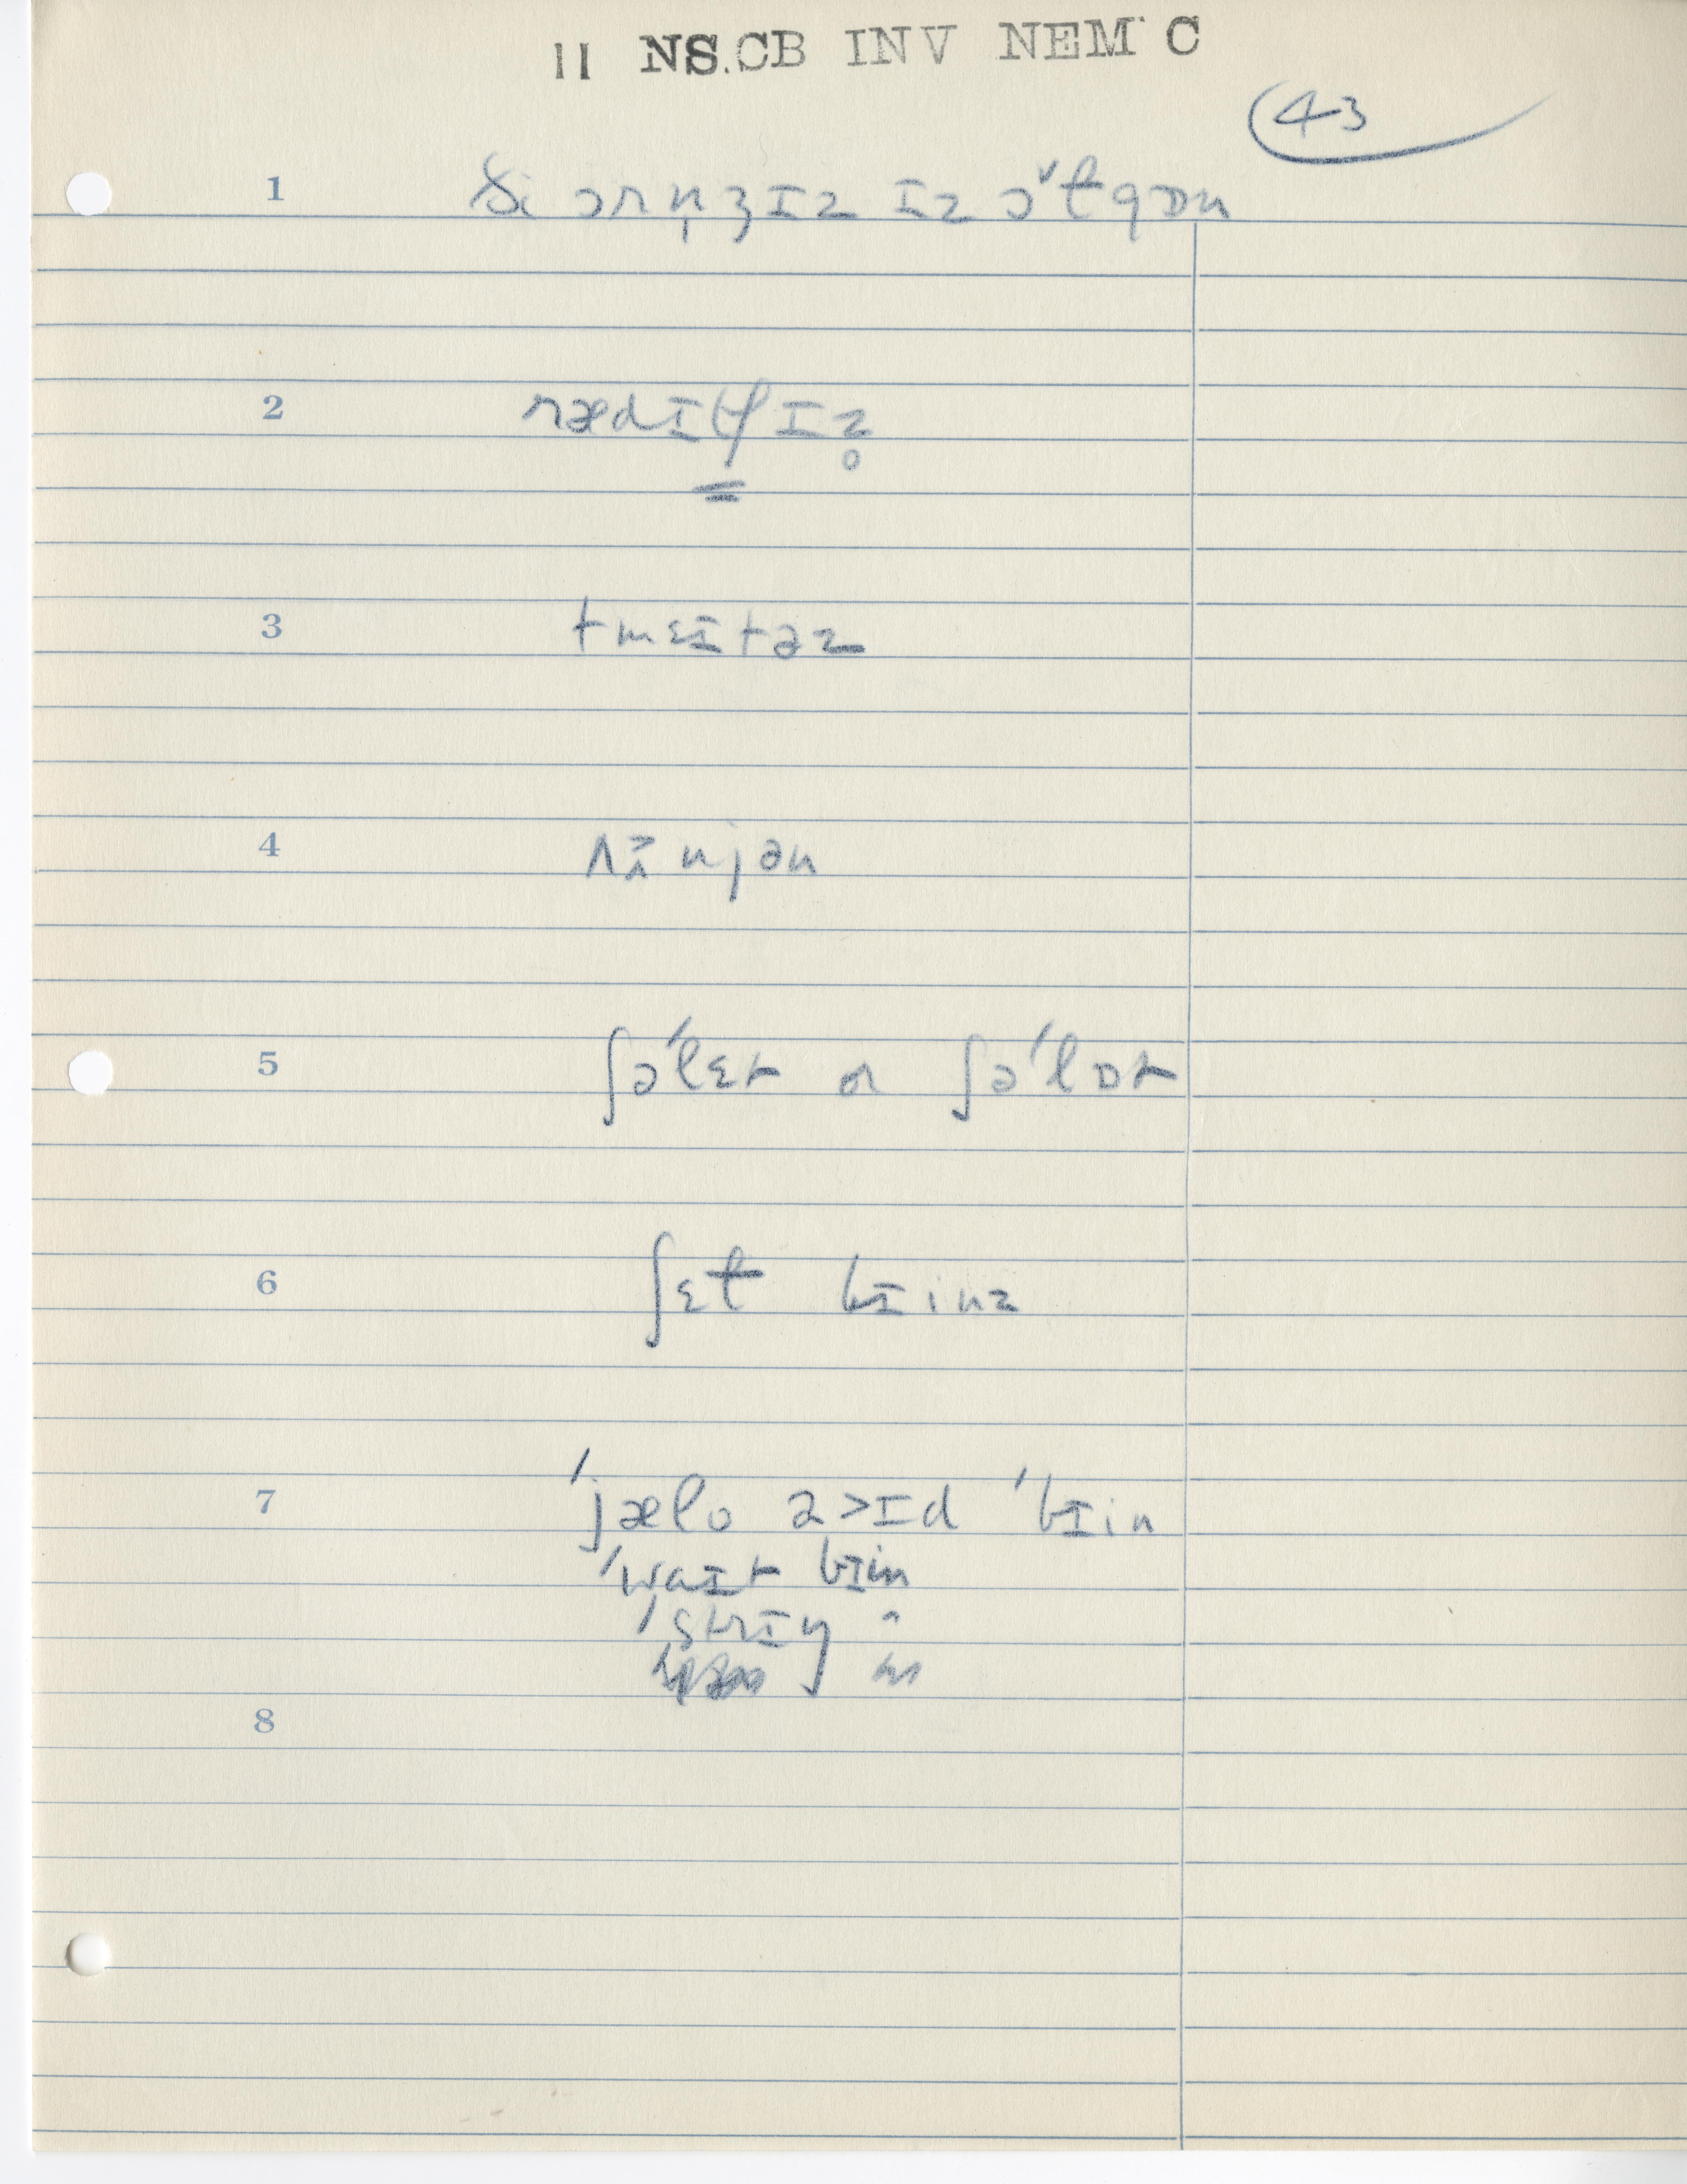 11 NS.CB INV NEM C
43
1 ði ɔrn̩ʒɪz ɪz ɔˇl gɒn
2 rædɪʃɪz̥
3 tmɛɪtəz
4 ʌ̃njən
5 ʃə'lɛt or ʃə'lɒt
6 ʃɛɫ bɪinz
7 'jælo aɪd 'bɪin
'waɪt bɪin
'strɪŋ "
8